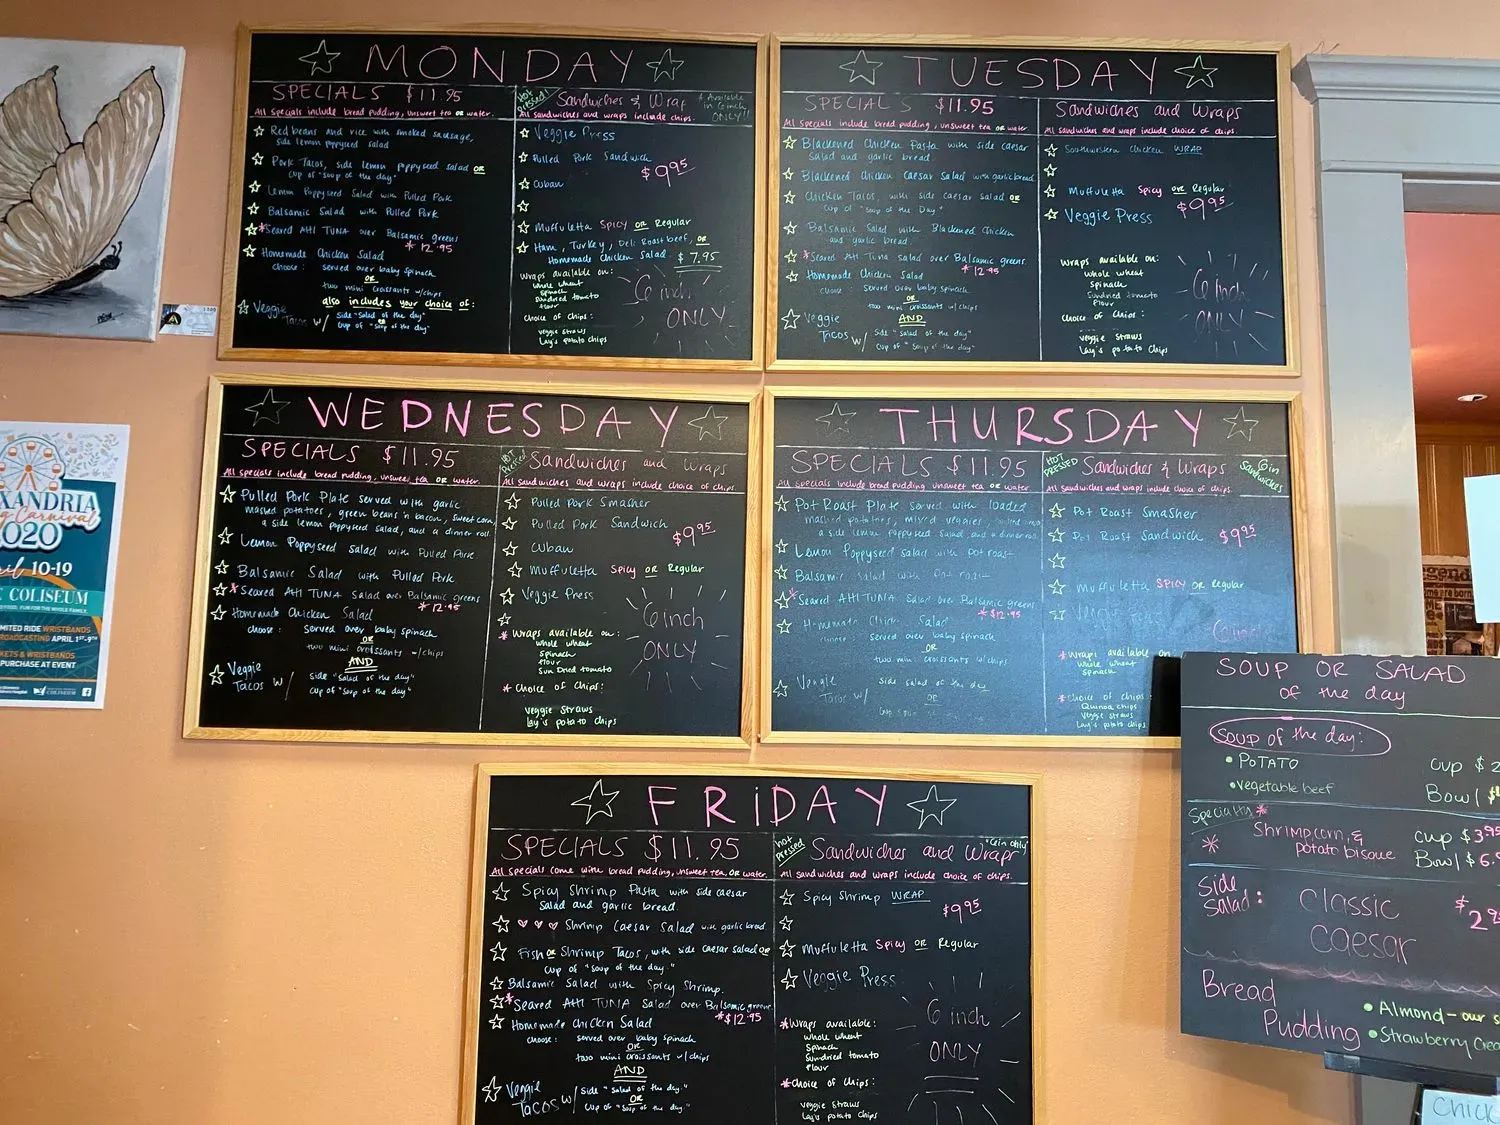 MONDAY
SPECIALS $11.95
All specials include bread pudding, unsweet tea OR water.
Red beans and rice with smoked sausage,
side lemon poppyseed salad
Pork Tacos, side lemon poppyseed salad OR
cup of "soup of the day"
Lemon Poppyseed Salad with Pulled Pork
Balsamic Salad with Pulled Pork
*Seared AHI TUNA over Balsamic greens
* 12.95
Homemade Chicken Salad
choose: served over baby spinach
OR
two mini croissants w/chips
also includes your choice of:
Veggie
Tacos w/
side "Salad of the day"
OR
cup of "soup of the day"
Hot Pressed!
Sandwiches & Wrap
* Available
in 6 inch
ONLY!!
All sandwiches and wraps include chips.
Veggie Press
Pulled Pork Sandwich
$9.95
Cuban
Muffuletta SPICY OR Regular
Ham, Turkey, Deli Roast beef, OR
Homemade Chicken Salad $7.95
Wraps available on:
whole wheat
spinach
sundried tomato
flour
Choice of Chips:
veggie straws
Lay's potato chips
6 inch
ONLY
TUESDAY
SPECIALS $11.95
All specials include bread pudding, unsweet tea OR water
Blackened Chicken Pasta with side caesar
salad and garlic bread
Blackened Chicken Caesar Salad with garlic bread
Chicken Tacos, with side caesar salad OR
cup of "Soup of the Day"
Balsamic Salad with Blackened Chicken
and garlic bread.
*Seared AHI Tuna salad over Balsamic greens
* 12.95
Homemade Chicken Salad
choose: served over baby spinach
OR
two mini croissants w/chips
AND
Veggie
Tacos w/
side "salad of the day"
cup of "Soup of the day"
Sandwiches and Wraps
All sandwiches and wraps include choice of chips.
Southwestern Chicken WRAP
Muffuletta Spicy OR Regular
$9.95
Veggie Press
Wraps available on:
whole wheat
Spinach
Sundried tomato
flour
Choice of Chips:
veggie straws
Lay's potato chips
6 inch
ONLY
WEDNESDAY
SPECIALS $11.95
All specials include bread pudding, unsweet tea OR water.
Pulled Pork Plate served with garlic
mashed potatoes, green beans 'n bacon, sweet corn,
a side lemon poppyseed salad, and a dinner roll.
Lemon Poppyseed Salad with Pulled Pork.
Balsamic Salad with Pulled Pork
*Seared AHI TUNA Salad over Balsamic greens
* 12.95
Homemade Chicken Salad
choose: served over baby spinach
OR
two mini croissants w/chips
AND
Veggie
Tacos w/
side "Salad of the day"
cup of "Soup of the day"
HOT Pressed
Sandwiches and Wraps
All sandwiches and wraps include choice of chips.
Pulled Pork Smasher
Pulled Pork Sandwich
$9.95
Cuban
Muffuletta Spicy OR Regular
Veggie Press
* Wraps available on:
whole wheat
spinach
flour
Sun Dried tomato
* Choice of Chips:
veggie straws
Lay's potato chips
6 inch
ONLY
THURSDAY
SPECIALS $11.95
All specials include bread pudding, unsweet tea OR water.
Pot Roast Plate served with loaded
mashed potatoes, mixed veggies,
a side lemon poppyseed salad, and a dinner roll
Lemon Poppyseed salad with pot roast
Balsamic salad with Pot roast
*Seared AHI TUNA Salad over Balsamic greens
* $12.95
Homemade Chicken Salad
choose: served over baby spinach
OR
two mini croissants w/chips
Veggie
Tacos w/
side salad of the day
OR
cup soup
HOT PRESSED
Sandwiches & Wraps
6in
Sandwiches
All sandwiches and wraps include choice of chips.
Pot Roast Smasher
Pot Roast Sandwich $9.95
Muffuletta SPICY OR Regular
6 inch
* Wraps available on
whole wheat
Spinach
* Choice of chips:
Quinoa chips
Veggie straws
Lay's potato chips
FRIDAY
SPECIALS $11.95
All specials come with bread pudding, unsweet tea, OR water.
Spicy Shrimp Pasta with side caesar
Salad and garlic bread.
Shrimp Caesar Salad with garlic bread.
Fish OR Shrimp Tacos, with side caesar salad OR
cup of "soup of the day."
Balsamic Salad with Spicy Shrimp.
*Seared AHI TUNA Salad over Balsamic greens
*$12.95
Homemade Chicken Salad
choose: served over baby spinach
OR
two mini croissants w/chips
AND
Veggie
Tacos w/
side "salad of the day."
OR
cup of "soup of the day."
hot pressed
Sandwiches and Wraps
"6in only"
All sandwiches and wraps include choice of chips.
Spicy Shrimp WRAP
$9.95
Muffuletta Spicy OR Regular
Veggie Press
*Wraps available:
whole wheat
Spinach
Sundried tomato
flour
*Choice of Chips:
veggie straws
Lay's potato chips
6 inch
ONLY
SOUP OR SALAD
of the day
Soup of the day:
• POTATO
• vegetable beef
cup $2
Bowl $
Specialty *
* Shrimp, corn, &
potato bisque
cup $3.95
Bowl $6.
Side
Salad:
Classic
caesar
$2.9
Bread
Pudding
• Almond - our s
• Strawberry Crea
Chick
XANDRIA
Carnival
2020
ril 10-19
COLISEUM
FUN FOR THE WHOLE FAMILY
MITED RIDE WRISTBANDS
ROADCASTING APRIL 1ST-9TH
KETS & WRISTBANDS
PURCHASE AT EVENT
COLISEUM